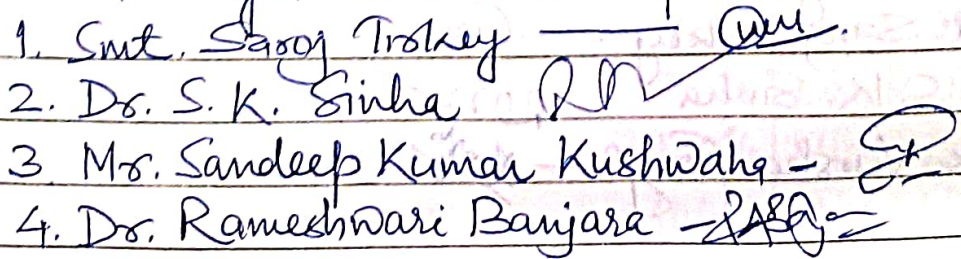 1. Smt. Saroj Tirkey
2. Dr. S. K. Sinha
3 Mr. Sandeep Kumar Kushwaha -
4. Dr. Rameshwari Banjara -